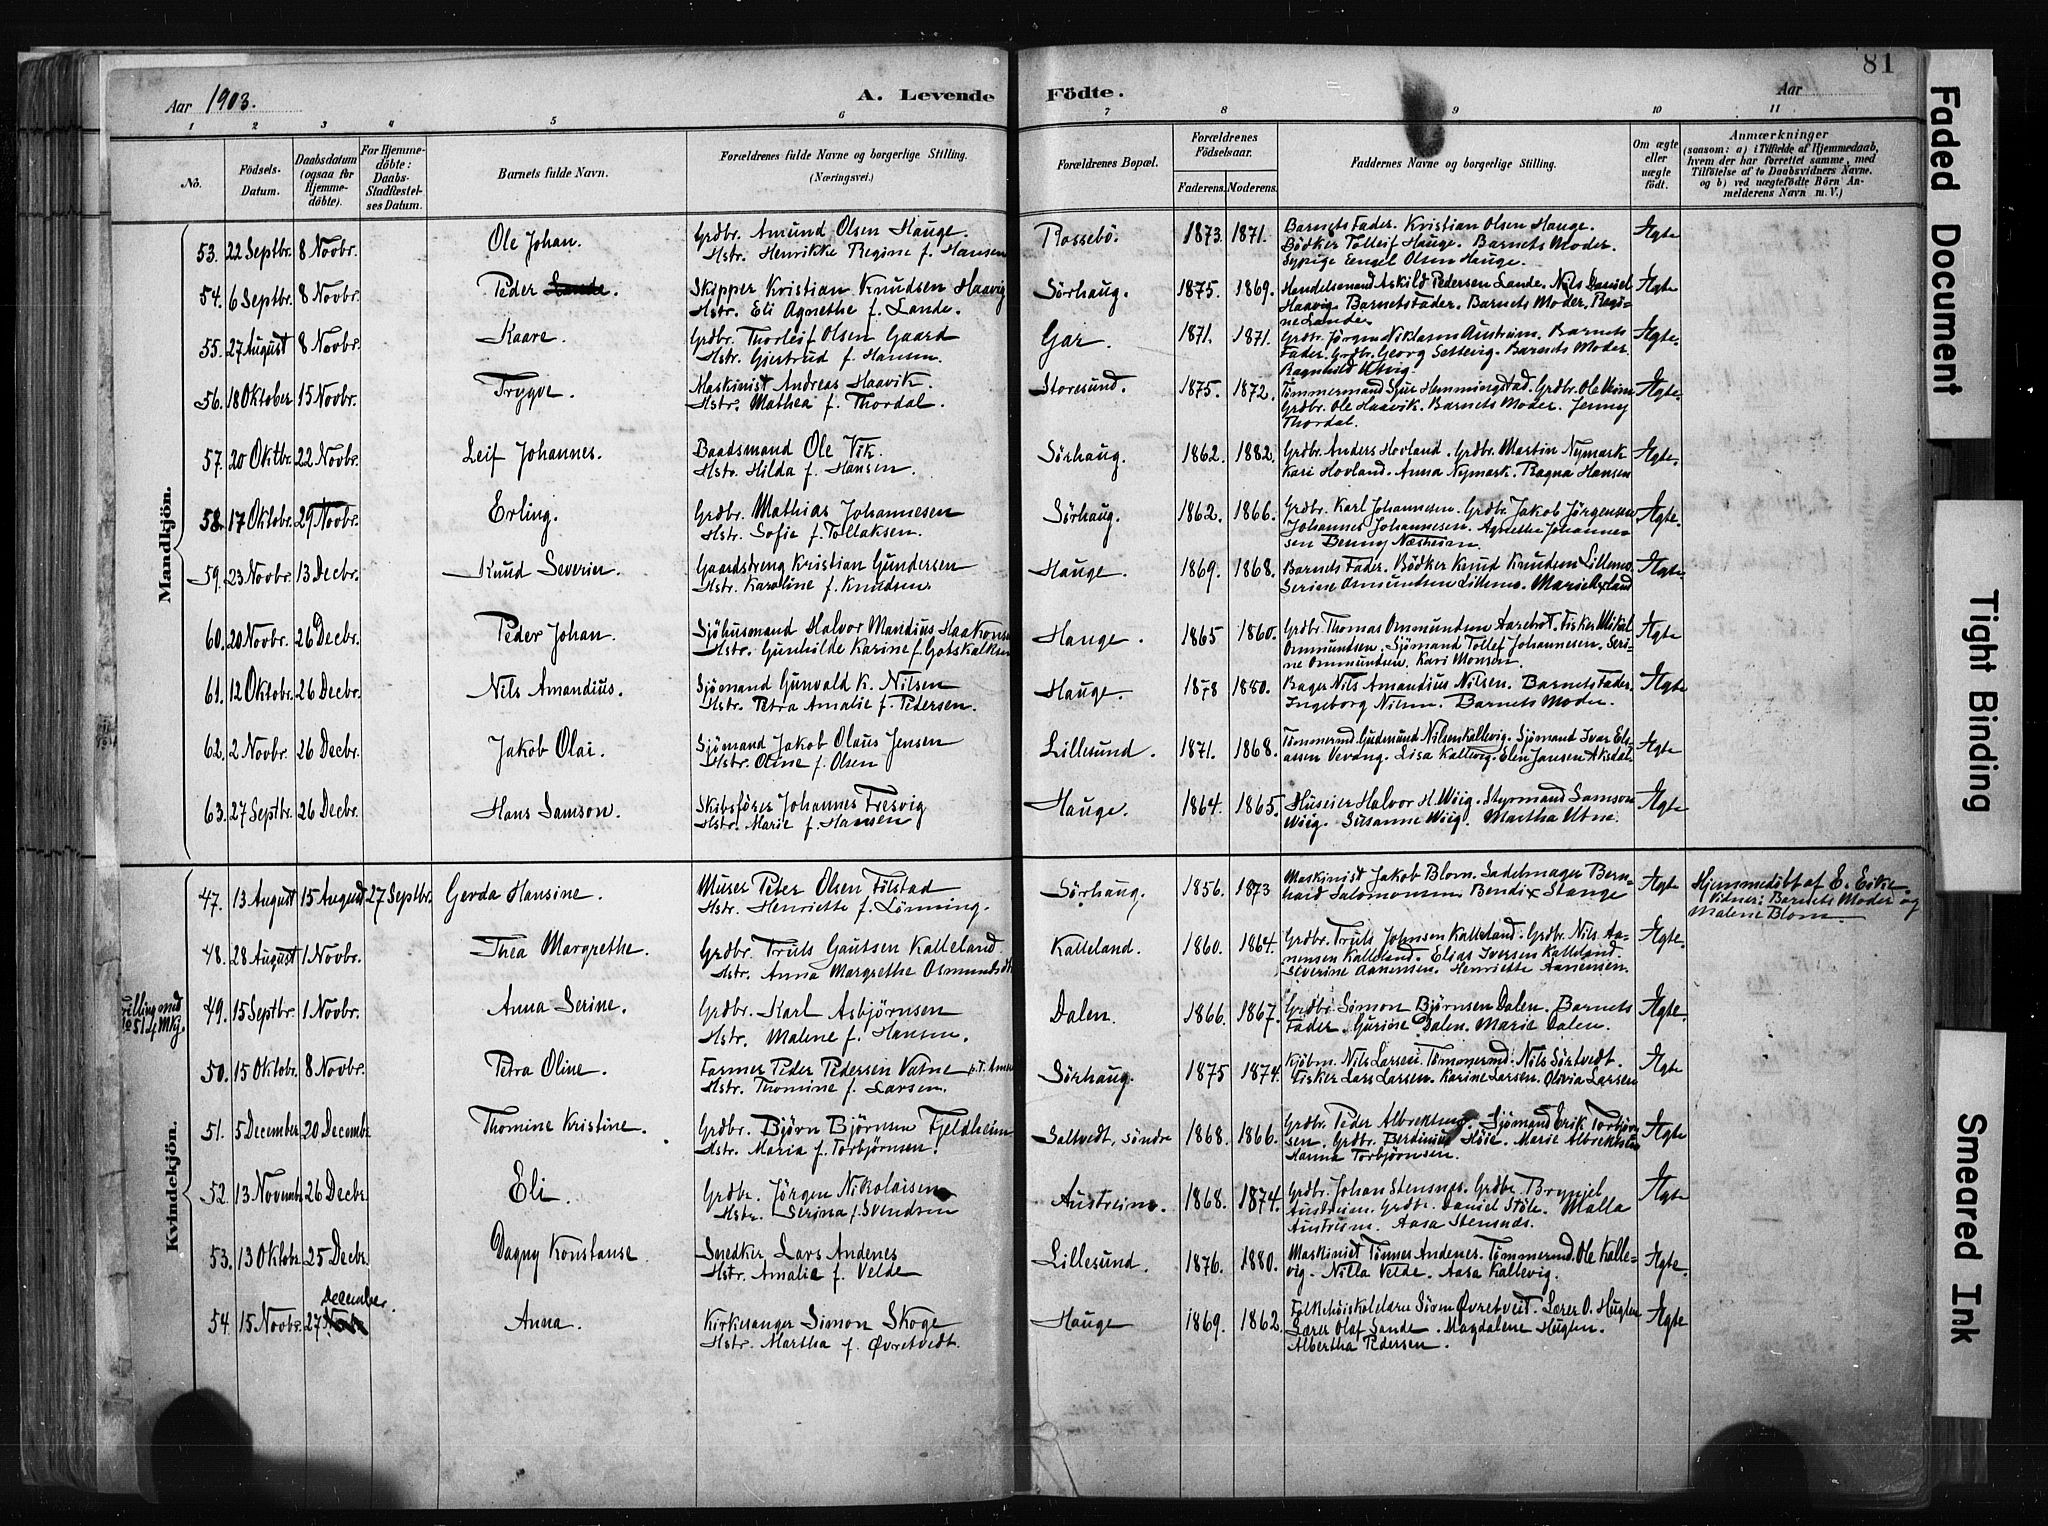 81
Aar 1903.
A. Levende Födte.
Aar
1 2 3 4 5 6 7 8 9 10 11
No.
Födsels-Datum.
Daabsdatum (ogsaa for Hjemmedöbte).
For Hjemmedöbte: Daabs-Stadfæstelses Datum.
Barnets fulde Navn.
Forældrenes fulde Navne og borgerlige Stilling. (Næringsvei.)
Forældrenes Bopæl.
Forældrenes Födselsaar.
Faderens. Moderens.
Faddernes Navne og borgerlige Stilling.
Om ægte eller uægte födt.
Anmærkninger (saasom: a) i Tilfælde af Hjemmedaab, hvem der har forrettet samme, med Tilföielse af to Daabsvidners Navne. og b) ved uægtefödte Börn Anmelderens Navn m. V.)
Mandkjön.
53. 22 Septbr. 8 Novbr. Ole Johan. Grdbr. Amund Olsen Hauge. Rossebö. 1873. 1871. Barnets Fader. Kristian Olsen Hauge. Ægte
Hstr. Henrikke Regine f. Hansen Bödker Tolleif Hauge. Barnets Moder.
Sypige Engel Olsen Hauge.
54. 6 Septbr. 8 Novbr. Peder Lande. Skipper Kristian Knudsen Haavig Sörhaug. 1875. 1869. Handelsmand Askild Pedersen Lande. Nils Daniel Ægte
Hstr. Eli Agnethe f. Lande. Haavig. Barnets Fader. Barnets Moder. Ragi-
ne Lande.
55. 27 August 8 Novbr. Kaare. Grdbr. Thorleif Olsen Gaard Gar. 1871. 1871. Grdbr. Jörgen Niklasen Austreim. Barnets Ægte.
Hstr. Gjertrud f. Hansen. Fader. Grdbr. Georg Settevig. Barnets Moder.
Ragnhild Utvig.
56. 18 Oktober 15 Novbr. Trygve. Maskinist Andreas Haavik. Storesund. 1875. 1872. Tömmermand Sjur Hemmingstad. Grdbr. Ole Ægte.
Hstr. Mathea f. Thordal. Grdbr. Ole Haavik. Barnets Moder. Jenny
Thordal.
57. 20 Oktbr. 22 Novbr. Leif Johannes. Baadsmand Ole Vik. Sörhaug. 1862. 1882. Grdbr. Anders Hovland. Grdbr. Martin Nymark Ægte.
Hstr. Hilda f. Hansen. Kari Hovland. Anna Nymark. Ragna Hansen
58. 17 Oktobr. 29 Novbr. Erling. Grdbr. Mathias Johannesen Sörhaug. 1862. 1866. Grdbr. Karl Johannesen. Grdbr. Jakob Jörgensen Ægte.
Hstr. Sofie f. Tollaksen. Johannes Johannesen. Agnethe Johanne-
sen Benny Næsheim.
59. 23 Novbr. 13 Decbr. Knud Severin. Gaardsdreng Kristian Gundersen Hauge. 1869. 1868. Barnets Fader. Bödker Knud Knudsen Lillenes. Ægte.
Hstr. Karoline f. Knudsen. Serine Osmundsen Lillenes. Marie
60. 20 Novbr. 26 Decbr. Peder Johan. Sjöhusmand Halvor Mandius Haakonsen Hauge. 1865 1860. Grdbr. Thomas Ommundsen Aarebrot. Fisker Mikal Ægte
Hstr. Gunhilde Karine f. Gotskalksen Ommundsen. Sjömand Tollef Johannesen. Seri-
ne Ommundsen. Kari Monsen.
61. 12 Oktobr. 26 Decbr. Nils Amandius. Sjömand Gunvald K. Nilsen Hauge. 1878 1880. Bager Nils Amandius Nilsen. Barnets Fader. Ægte
Hstr. Petra Amalie f. Pedersen. Ingeborg Nilsen. Barnets Moder.
62. 2 Novbr. 26 Decbr. Jakob Olai. Sjömand Jakob Olaus Jensen Lillesund. 1871. 1868. Tömmermd. Gudmund Nilsen Kallevig. Sjömand Ivar Eli- Ægte
Hstr. Oline f. Olsen assen Vevang. Lisa Kallevig. Elen Jansen Aksdal.
63. 27 Septbr. 26 Decbr. Hans Samson. Skibsförer Johannes Tresvig Hauge. 1864. 1865. Huseier Halvor H. Wiig. Styrmand Samson Ægte
Hstr. Marie f. Hansen Wiig. Susanne Wiig. Martha Utne.
Kvindekjön.
47. 13 August 15 August 27 Septbr. Gerda Hansine. Murer Peter Olsen Filstad Sörhaug. 1856. 1873 Maskinist Jakob Blom. Sadelmager Bern- Ægte Hjemmedöbt af E. Eike.
Hstr. Henriette f. Lönning. hard Salomonsen Bendix Stange Vidner: Barnets Moder og
Malene Blom.
48. 28 August 1 Novbr. Thea Margrethe. Grdbr. Truls Gautsen Kalleland Kalleland. 1860. 1864. Grdbr. Truls Johnsen Kalleland. Grdbr. Nils Aa- Ægte.
Hstr. Anna Margrethe Osmundsdt. nensen Kalleland. Elias Iversen Kalleland.
Severine Aanensen. Henriette Aanensen.
49. 15 Septbr. 1 Novbr. Anna Serine. Grdbr. Karl Asbjörnsen Dalen. 1866. 1867. Grdbr. Simon Björnsen Dalen. Barnets Ægte.
Hstr. Malene f. Hansen. Fader. Gurine Dalen. Marie Dalen.
50. 15 Oktobr. 8 Novbr. Petra Oline. Farmer Peder Pedersen Vatne p.T. Amer Sörhaug. 1875 1874. Kjöbm. Nils Larsen. Tömmermd. Nils Sörtvedt. Ægte
Hstr. Thomine f. Larsen. Fisker Lars Larsen. Karine Larsen. Olivia Larsen
51. 5 December 20 December Thomine Kristine. Grdbr. Björn Björnsen Fjeldheim Saltvedt, söndre 1868. 1866. Grdbr. Peder Albrektsen. Sjömand Erik Torbjörn- Ægte
Hstr. Maria f. Torbjörnsen. sen. Grdbr. Berdinius Höie. Marie Albrektsen
Hanna Torbjörnsen.
52. 13 Novembr 26 Decbr. Eli. Grdbr. Jörgen Nikolaisen Austreim. 1868. 1874. Grdbr. Johan Stensnes. Grdbr. Brynjel Ægte
Hstr. Serina f. Svendsen Austreim. Grdbr. Daniel Stöle. Malla
Austreim. Aasa Stensnes.
53. 13 Oktobr 25 Decbr. Dagny Konstanse Snedker Lars Andenes Lillesund. 1876. 1880. Maskinist Tönnes Andenes. Tömmermd. Ole Kalle- Ægte.
Hstr. Amalie f. Velde vig. Nilla Velde. Aasa Kallevig.
54 15 Novbr. 27 December. Anna. Kirkesanger Simon Skoge Hauge 1869. 1862. Folkehöiskolelærer Sören Övretveit. Lærer O. Huglen Ægte
Hstr. Martha f. Øvretvedt. Lærer Olaf Sande. Magdalene Huglen.
Albertha Pedersen.
Faded Document
Tight Binding
Smeared Ink